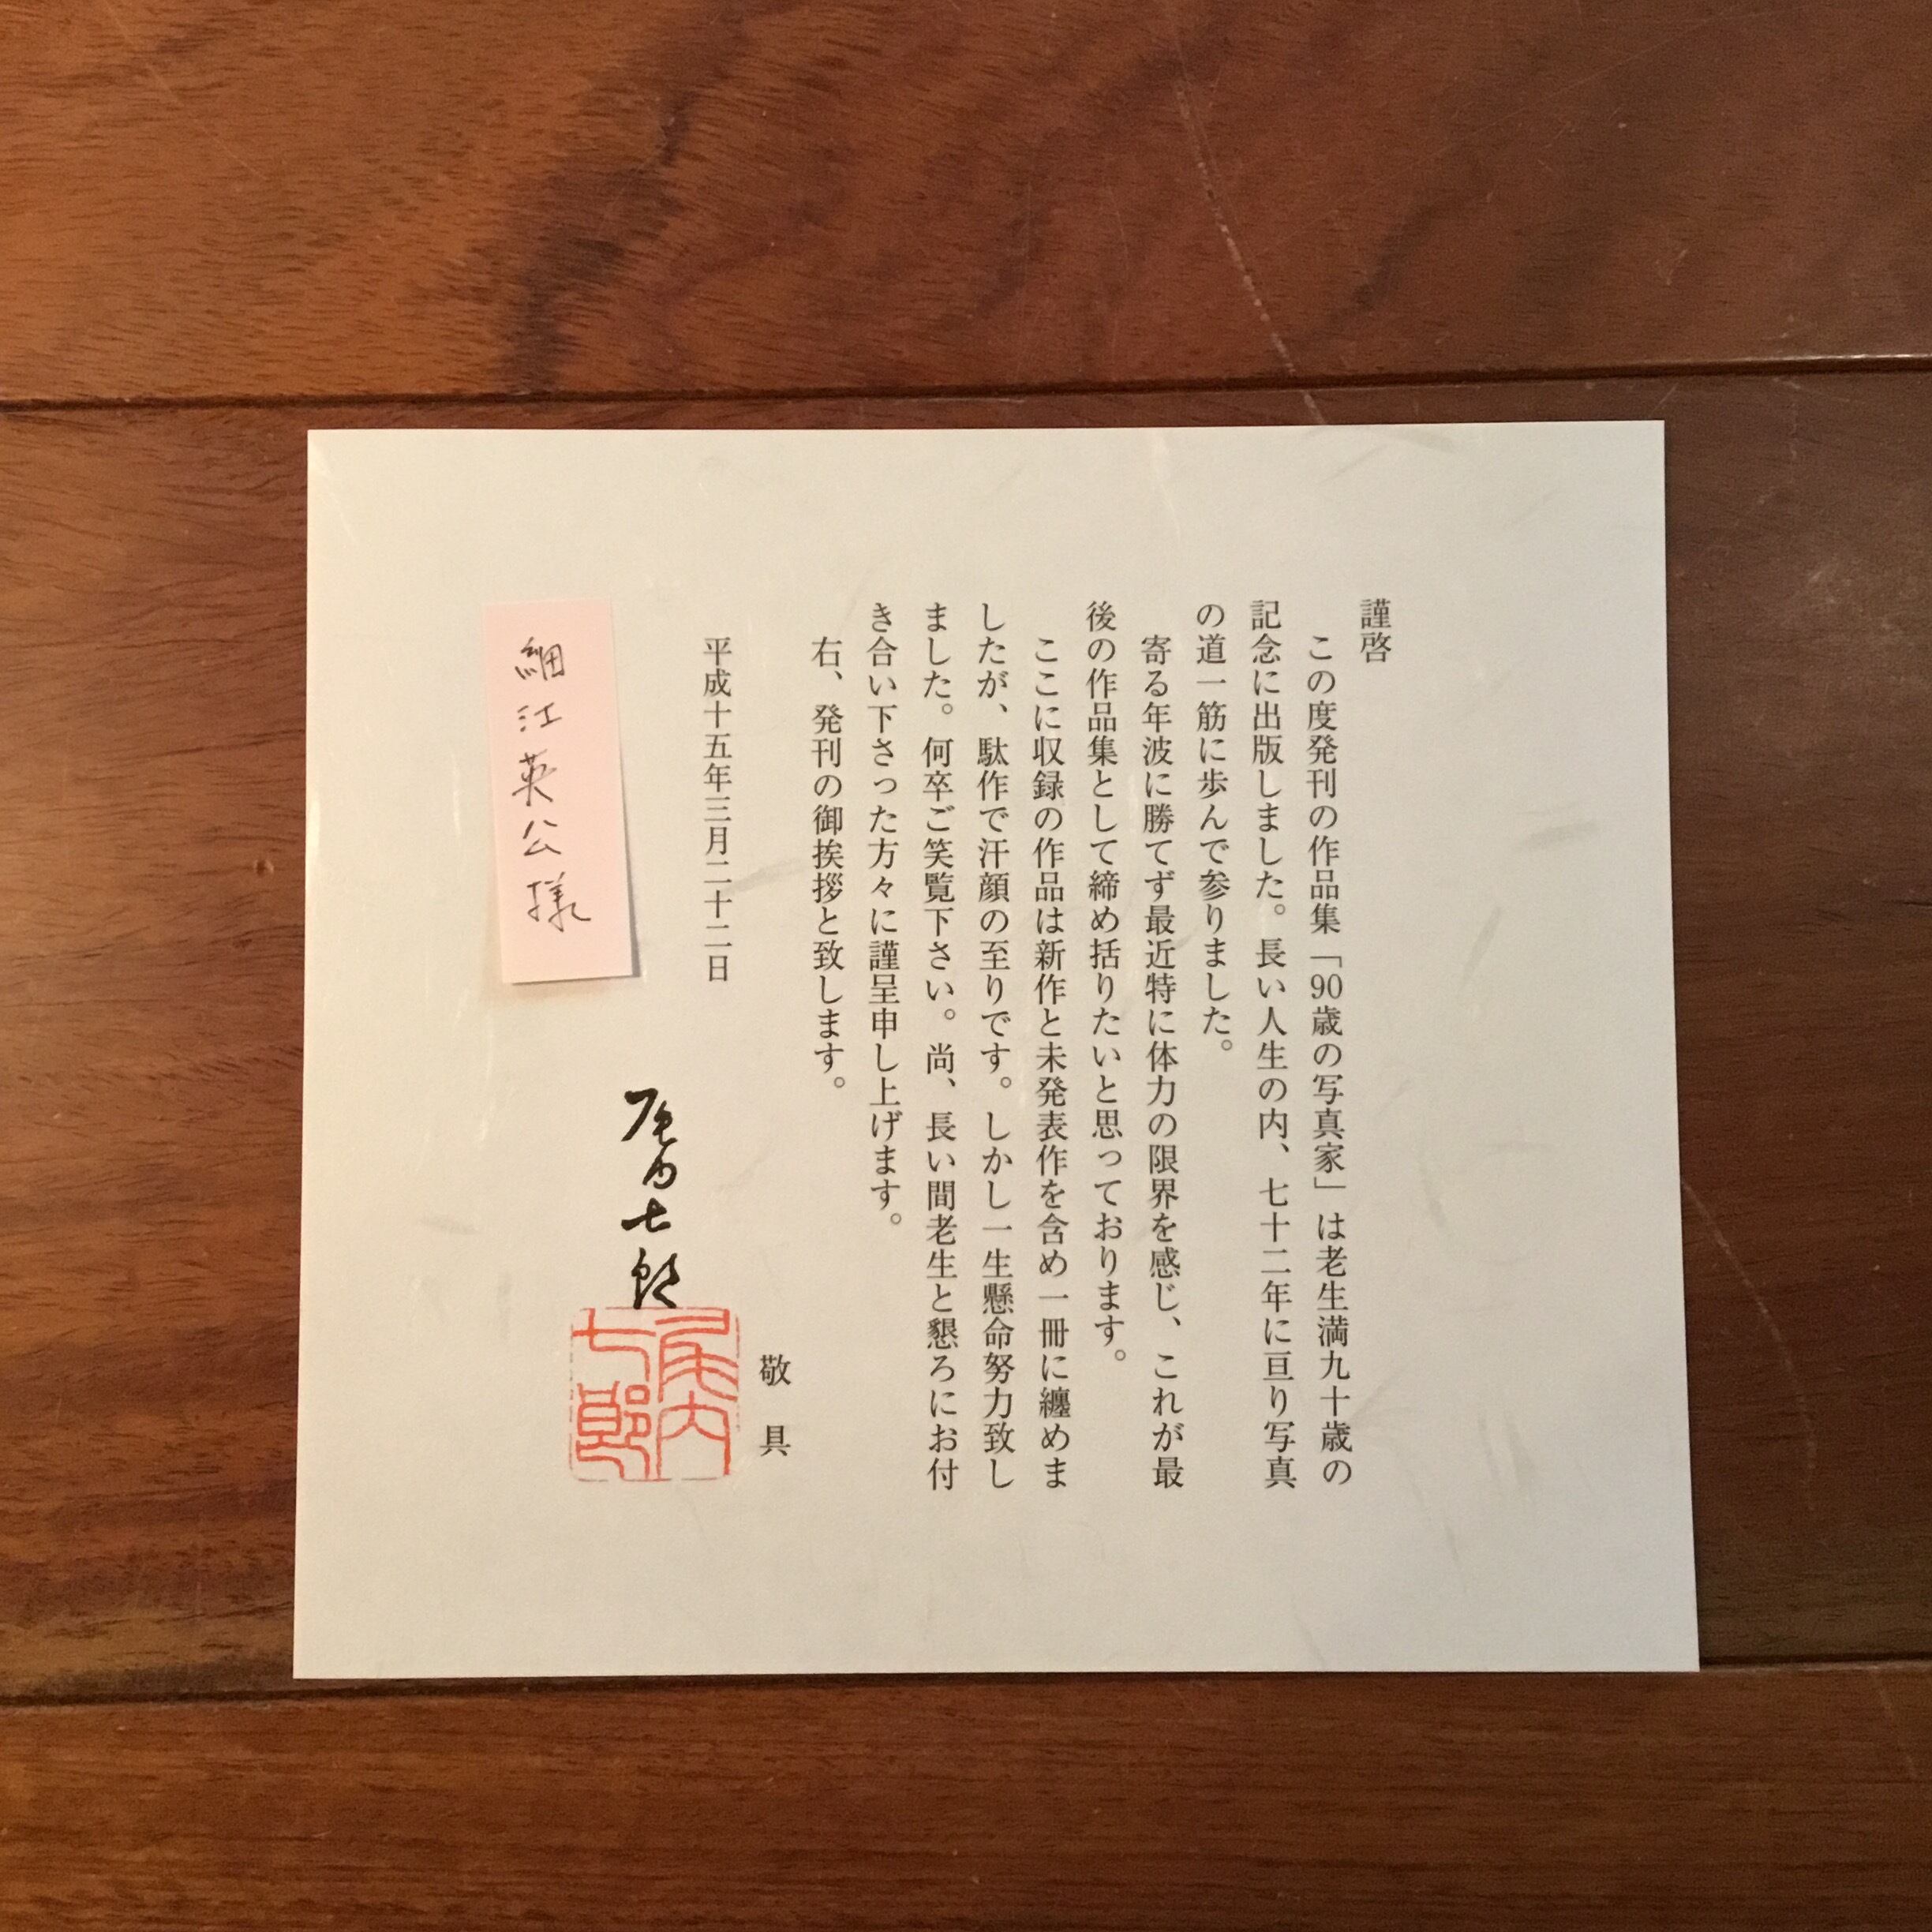 謹啓
この度発刊の作品集「90歳の写真家」は老生満九十歳の
記念に出版しました。長い人生の内、七十二年に亘り写真
の道一筋に歩んで参りました。
寄る年波に勝てず最近特に体力の限界を感じ、これが最
後の作品集として締め括りたいと思っております。
ここに収録の作品は新作と未発表作を含め一冊に纏めま
したが、駄作で汗顔の至りです。しかし一生懸命努力致し
ました。何卒ご笑覧下さい。尚、長い間老生と懇ろにお付
き合い下さった方々に謹呈申し上げます。
右、発刊の御挨拶と致します。
敬具
平成十五年三月二十二日
尾内七郎
尾内
七郎
細江英公様